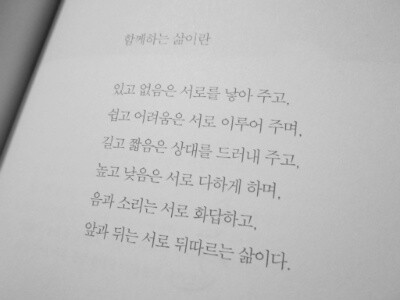 함께하는 삶이란
있고 없음은 서로를 낳아 주고,
쉽고 어려움은 서로 이루어 주며,
길고 짧음은 상대를 드러내 주고,
높고 낮음은 서로 다하게 하며,
음과 소리는 서로 화답하고,
앞과 뒤는 서로 뒤따르는 삶이다.